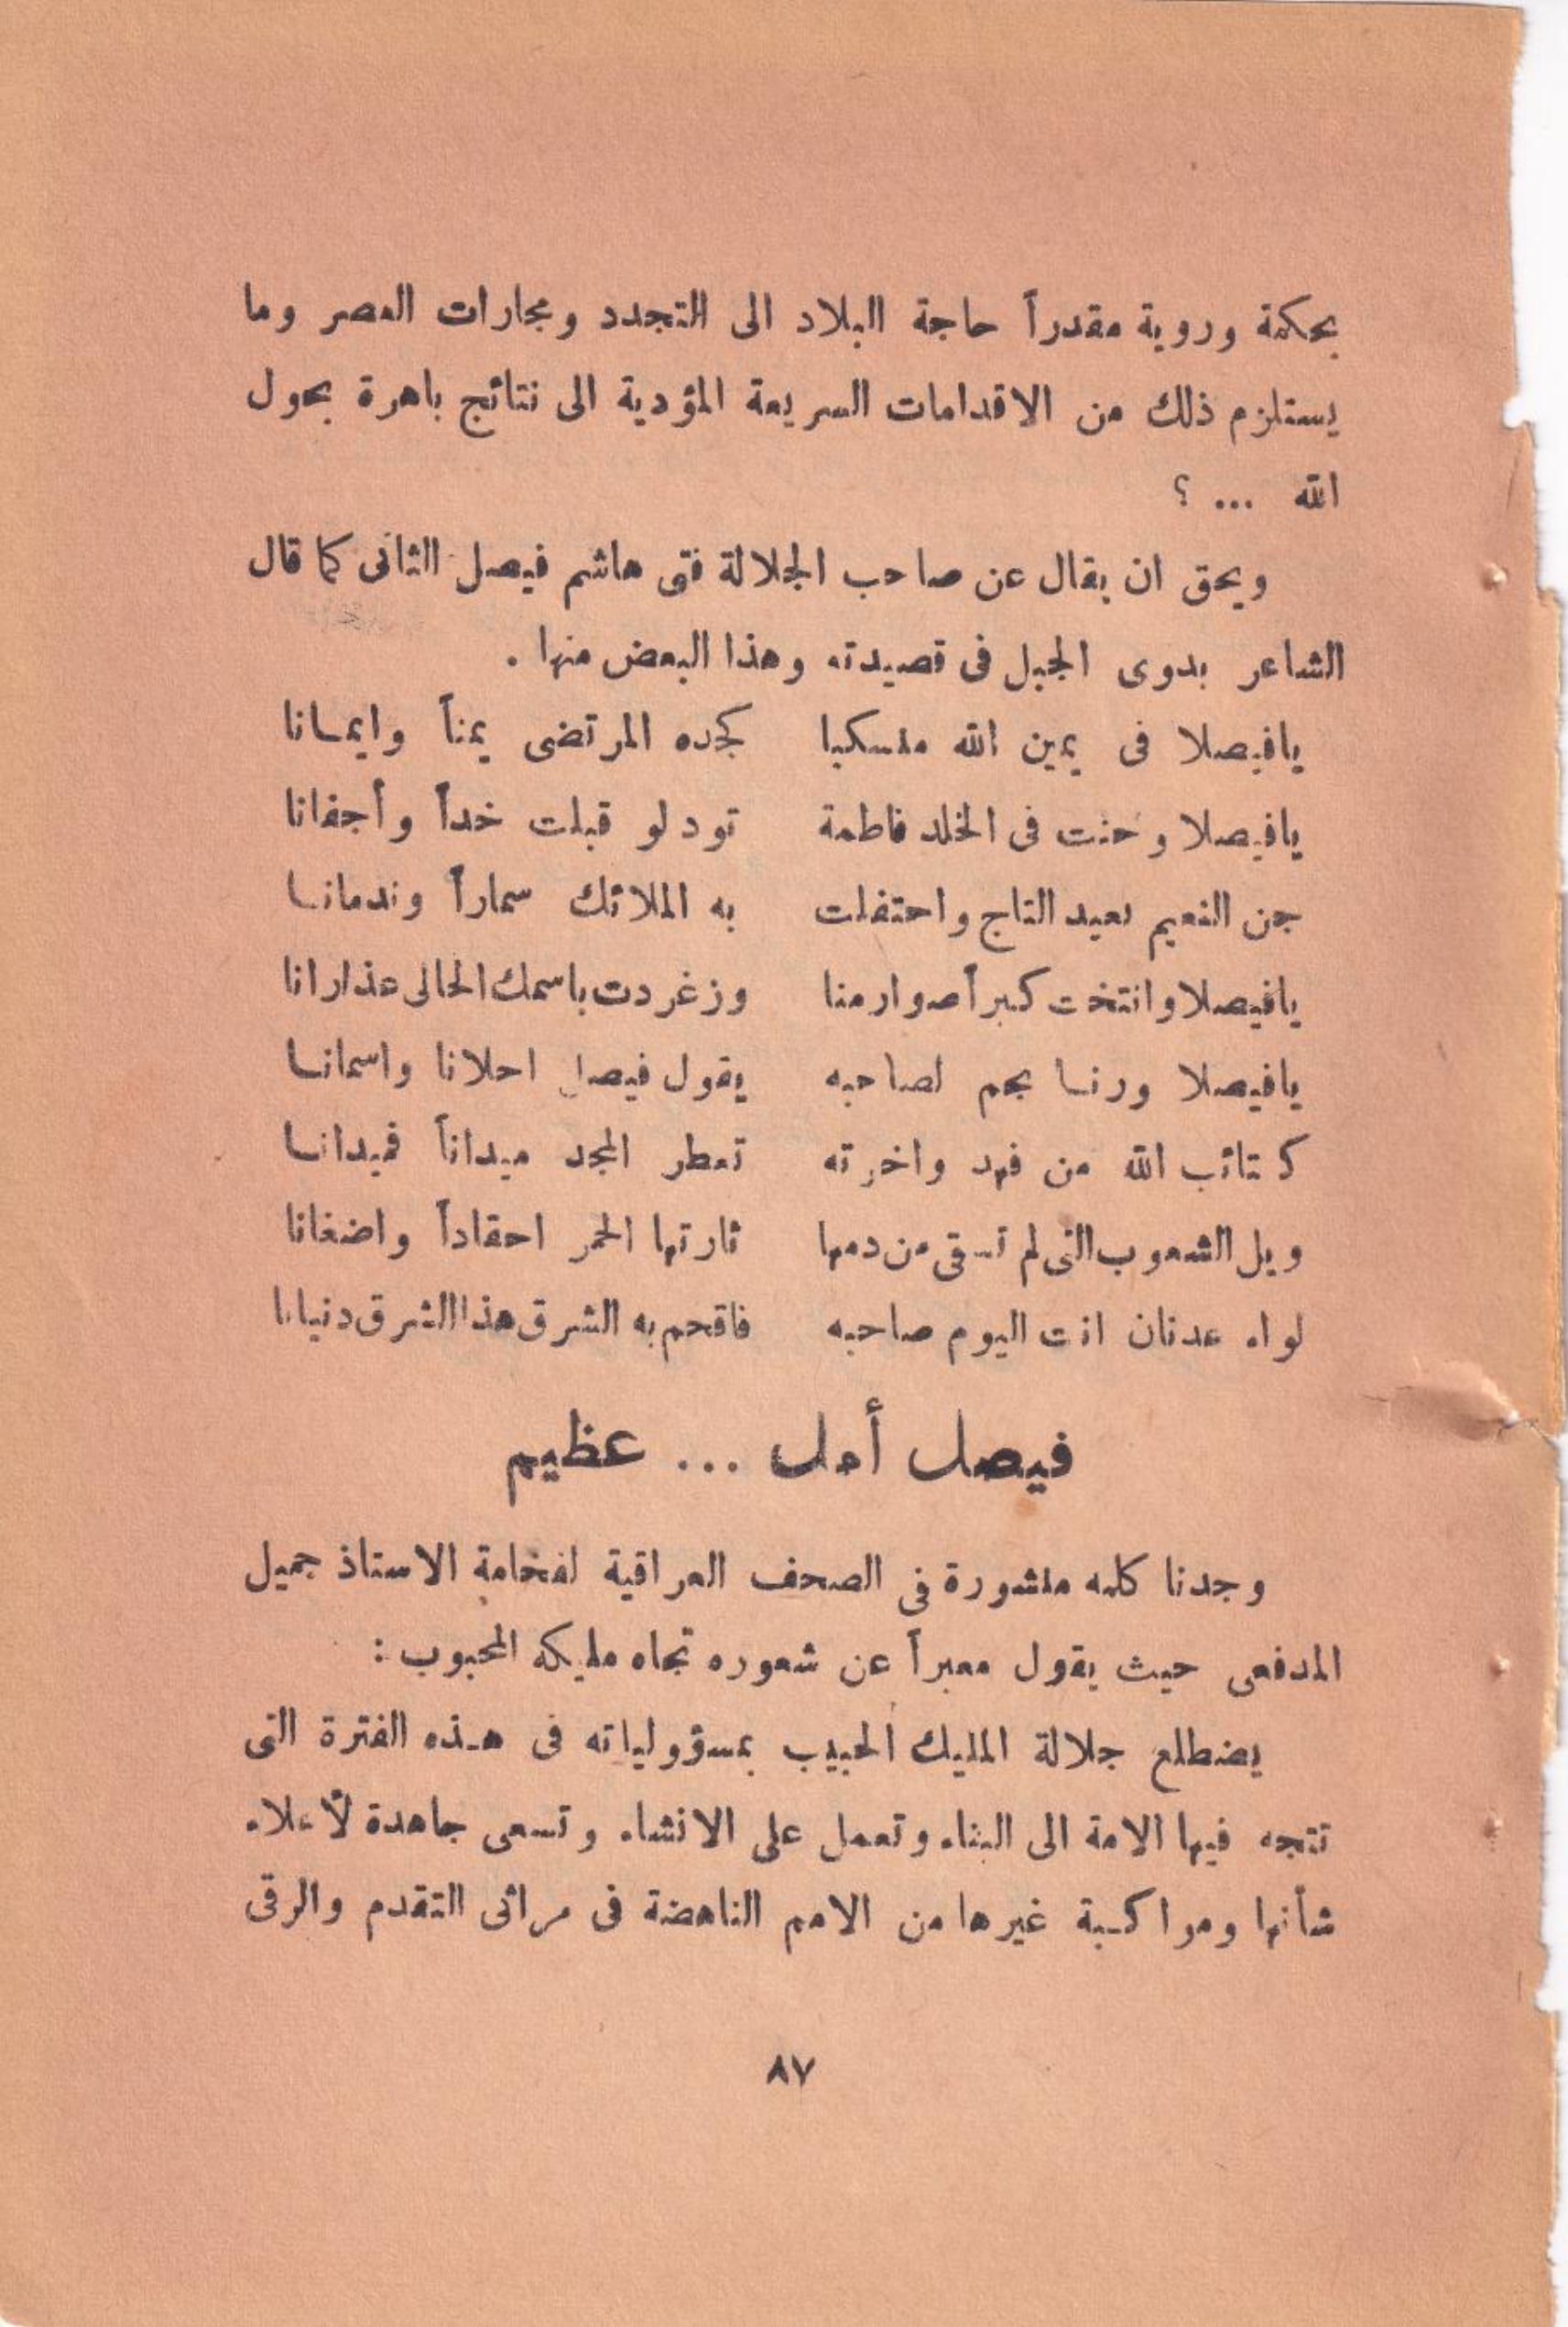 بحكمة وروية مقدراً حاجة البلاد الى التجدد ومجارات العصر وما
يستلزم ذلك من الاقدامات السريعة المؤدية الى نتائج باهرة بحول
الله ... ؟
ويحق ان يقال عن صاحب الجلالة فتى هاشم فيصل الثانى كما قال
الشاعر بدوى الجبل فى قصيدته وهذا البعض منها .
يافيصلا فى يمين الله منسكبا كجده المرتضى يمناً وايمانا
يافيصلا وحنت فى الخلد فاطمة تود لو قبلت خداً وأجفانا
جن النعيم بعيد التاج واحتفلت به الملائك سماراً وندمانا
يافيصلا وانتخت كبراً صوارمنا وزغردت باسمك الحالى عذارانا
يافيصلا ورنا نجم لصاحبه يقول فيصل احلانا واسمانا
كتائب الله من فهد واخوته تعطر المجد ميداناً فميدانا
ويل الشعوب التى لم تسقى من دمها ثارتها الحمر احقاداً واضغانا
لواء عدنان انت اليوم صاحبه فاقحم به الشرق هذا الشرق دنيانا
فيصل أمل ... عظيم
وجدنا كلمه منشورة في الصحف العراقية لفخامة الاستاذ جميل
المدفعى حيث يقول معبراً عن شعوره تجاه مليكه المحبوب :
يضطلع جلالة المليك الحبيب بمسؤولياته فى هذه الفترة التى
تتجه فيها الامة الى البناء وتعمل على الانشاء وتسعى جاهدة لأعلاء
شأنها ومواكبة غيرها من الامم الناهضة فى مراقى التقدم والرقى
٨٧